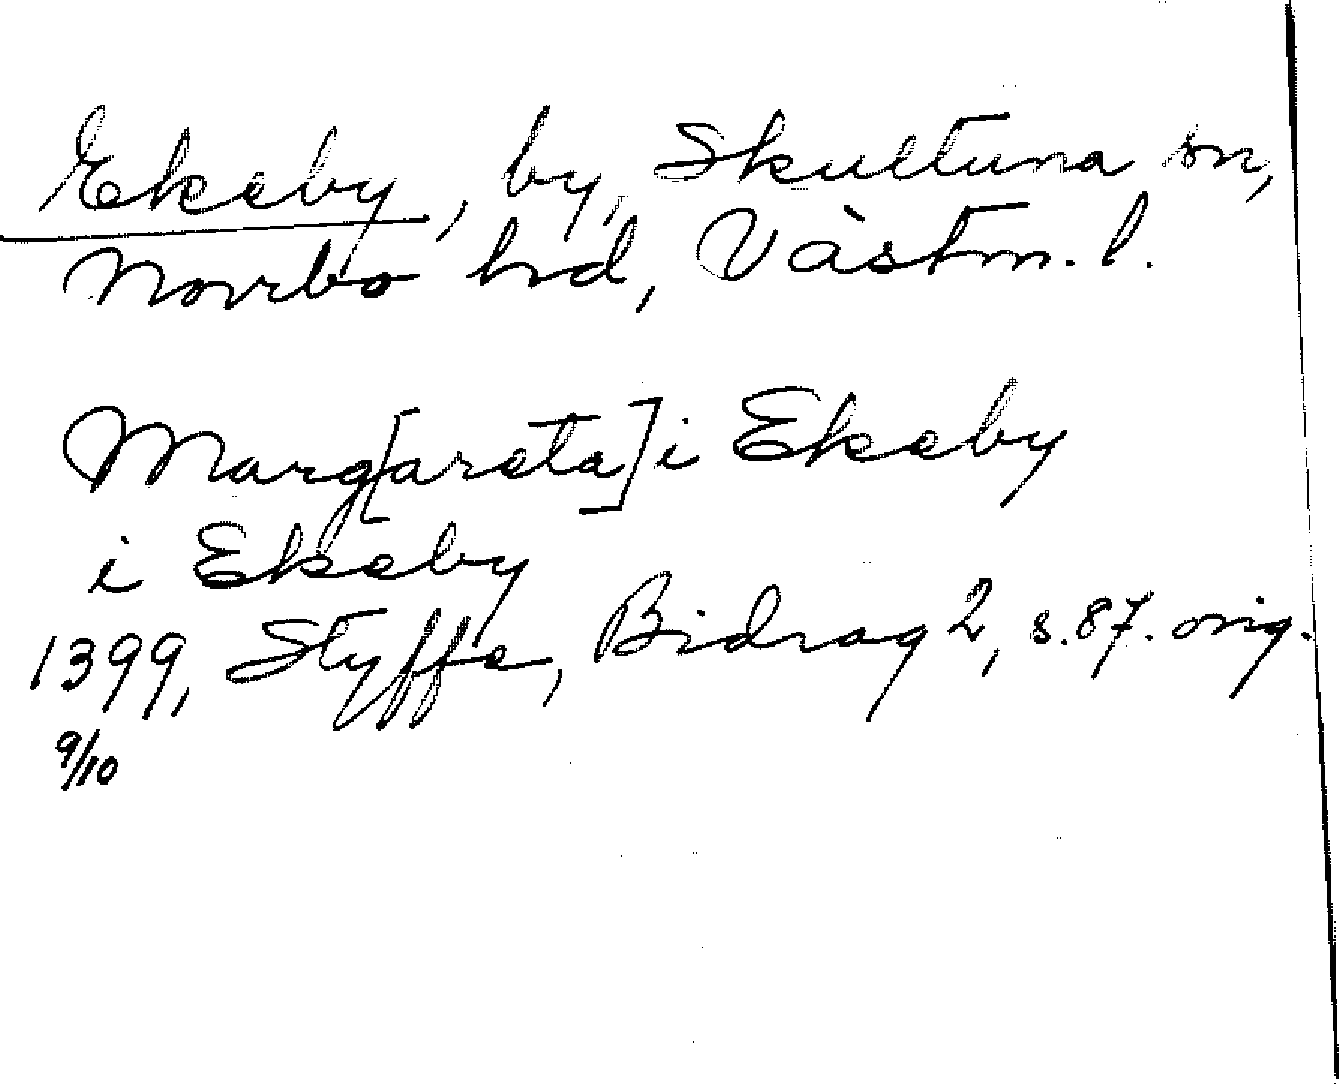 Ekeby, by, Skultuna sn,
Norrbo hd, Västm. l.
Marg[areta] i Ekeby
i Ekeby
1399, Styffe, Bidrag 2, s. 87. orig.
9/10